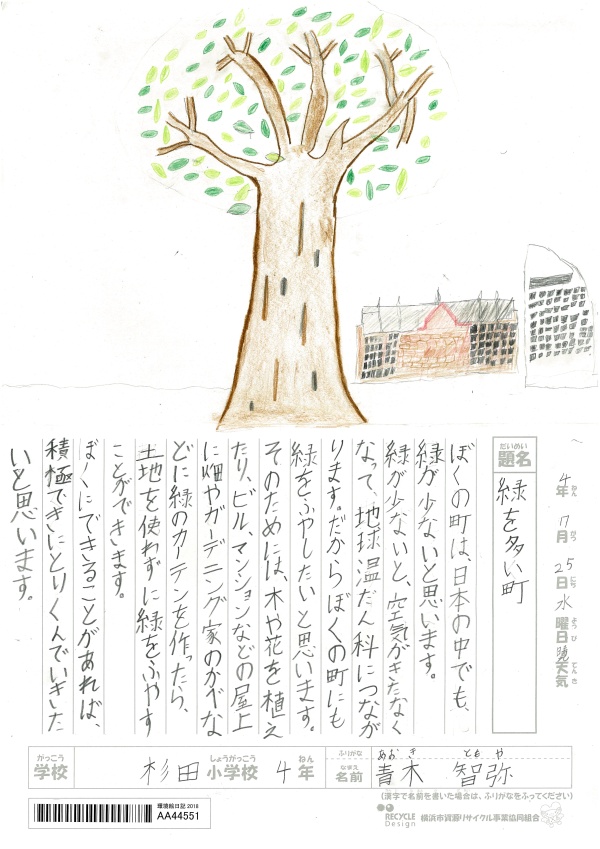 4年 7月 25日 水曜日 晴天気
だいめい
題名 緑を多い町
ぼくの町は、日本の中でも、
緑が少ないと思います。
緑が少ないと、空気がきたなく
なって、地球温だん科につなが
ります。だからぼくの町にも
緑をふやしたいと思います。
そのためには、木や花を植え
たり、ビル、マンションなどの屋上
に畑やガーデニング家のかべな
どに緑のカーテンを作ったら、
土地を使わずに緑をふやす
ことができます。
ぼくにできることがあれば、
積極てきにとりくんでいきた
いと思います。
がっこう しょうがっこう ねん ふりがな あおき ともや
学校 杉田小学校 4年 なまえ 名前 青木 智弥
(漢字で名前を書いた場合は、ふりがなをふってください)
環境絵日記 2018
AA44551
RECYCLE Design 横浜市資源リサイクル事業協同組合